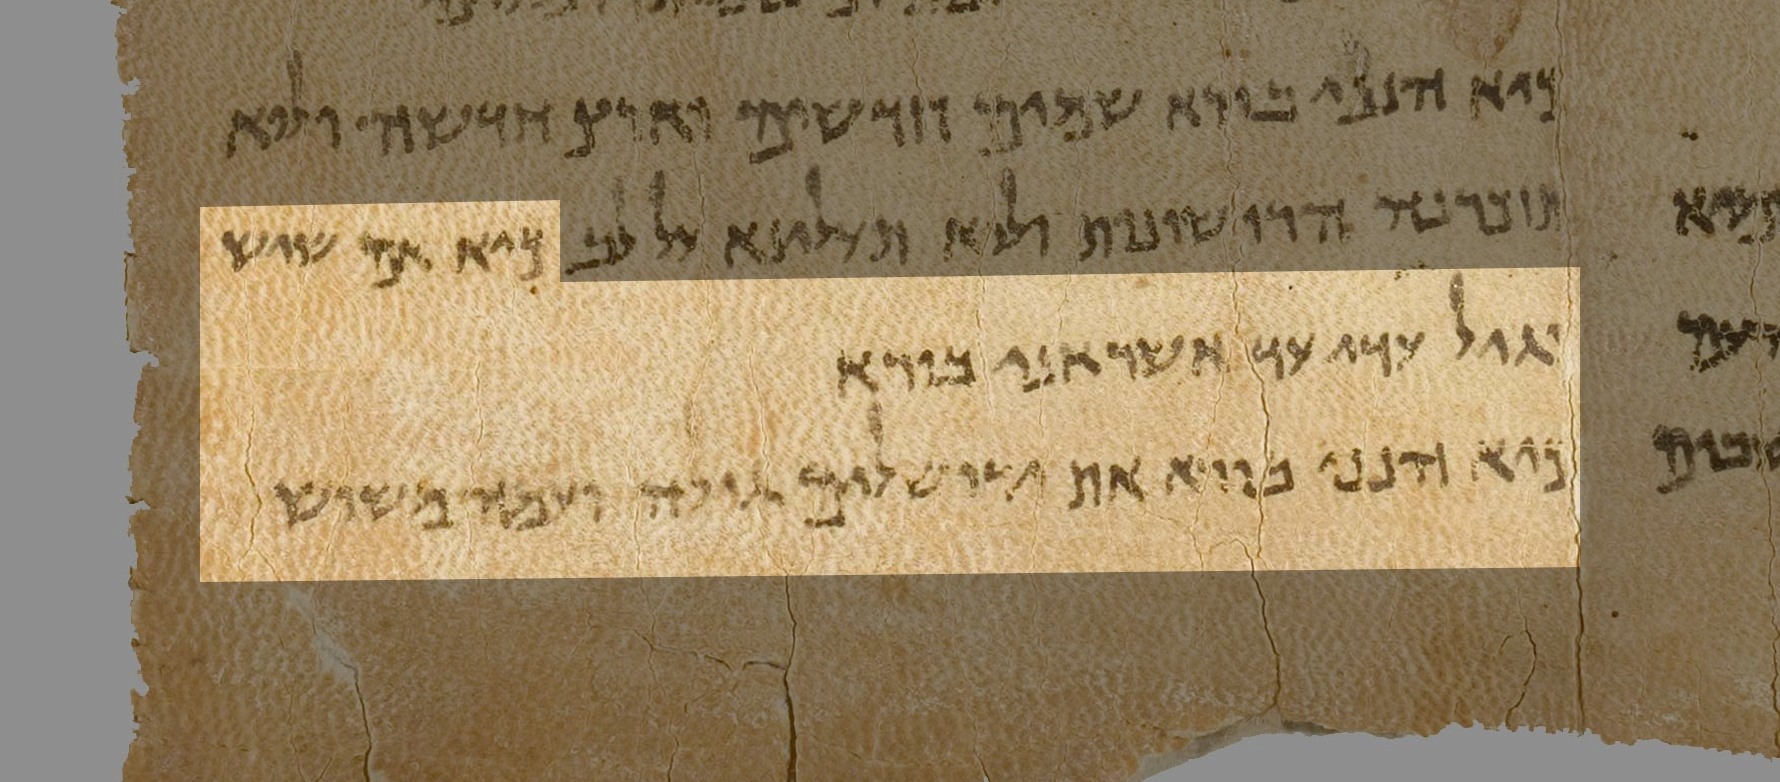 כיא הנני בורא שמים חדשים וארץ חדשה ולוא
תזכרנה הרישונות ולוא תעלינא על לב כיא אם שוש
וגיל עדי עד אשר אני בורא
כיא הנני בורא את ירושלים גילה ועמה משוש